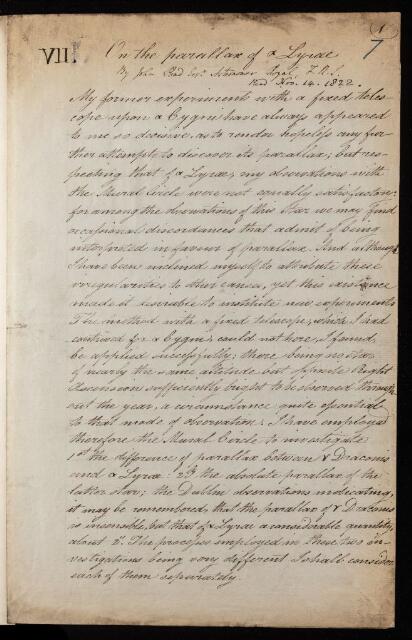 1
7
VII.
On the parallax of α Lyrae
By John Pond Esqr. Astronomer Royal, F.R.S.
Read Nov. 14. 1822.
My former experiments with a fixed teles-
cope upon α Cygni have always appeared
to me so decisive, as to render hopeless any fur-
ther attempts to discover its parallax; but res-
pecting that of α Lyrae, my observations with
the Mural Circle were not equally satisfactory
for among the observations of this star we may find
occasional discordances that admit of being
interpreted in favour of parallax. And although
I have been inclined myself to attribute these
irregularities to other causes, yet this circumstance
made it desirable to institute new experiments
The method with a fixed telescope, which I had
contrived for α Cygni, could not here, I found,
be applied successfully; there being no star
of nearly the same altitude but opposite Right
Ascension sufficiently bright to be observed through-
out the year, a circumstance quite essential
to that mode of observation. I have employed
therefore the Mural Circle to investigate
1st the difference of parallax between γ Draconis
and α Lyrae: 2dly the absolute parallax of the
latter star; the Dublin observations indicating,
it may be remembered, that the parallax of γ Draconis
is insensible, but that of α Lyrae a considerable quantity,
about 2". The process employed in these two in-
vestigations being very different I shall consider
each of them separately.